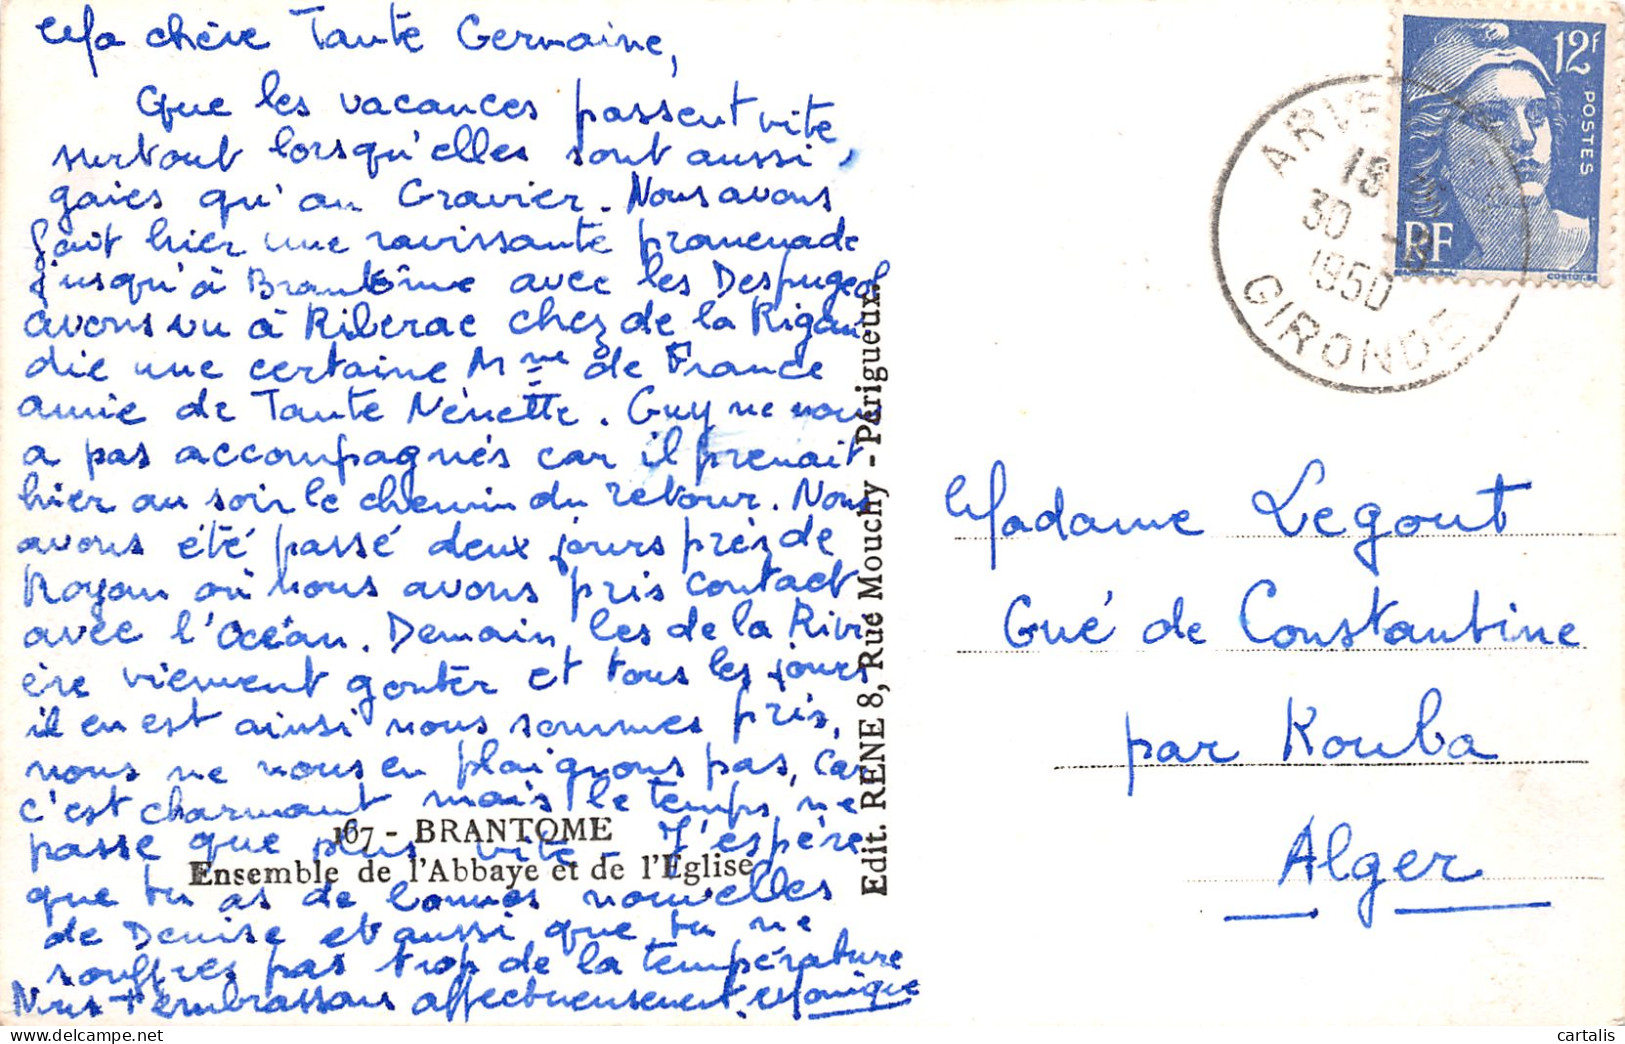 Ma chère Tante Germaine,
Que les vacances passent vite
surtout lorsqu'elles sont aussi
gaies qu'au Gravier. Nous avons
fait hier une ravissante promenade
jusqu'à Brantôme avec les Despujeol
avons vu à Riberac chez de la Rigau
die une certaine Mme de France
amie de Tante Nénette. Guy ne nous
a pas accompagnés car il prenait
hier au soir le chemin du retour. Nous
avons été passé deux jours près de
Royan où nous avons pris contact
avec l'Océan. Demain les de la Rivi
ère viennent goûter et tous les jours
il en est ainsi nous sommes pris,
nous ne nous en plaignons pas, car
c'est charmant mais le temps ne
passe que plus vite - J'espère
que tu as de bonnes nouvelles
de Denise et aussi que tu ne
souffres pas trop de la température
Nous t'embrassons affectueusement. Monique
167 - BRANTOME
Ensemble de l'Abbaye et de l'Eglise
Edit. RENE 8, Rue Mouchy - Périgueux
12F
POSTES
RF
30 -8
1950
GIRONDE
Madame Legout
Gué de Constantine
par Kouba
Alger
cartalis